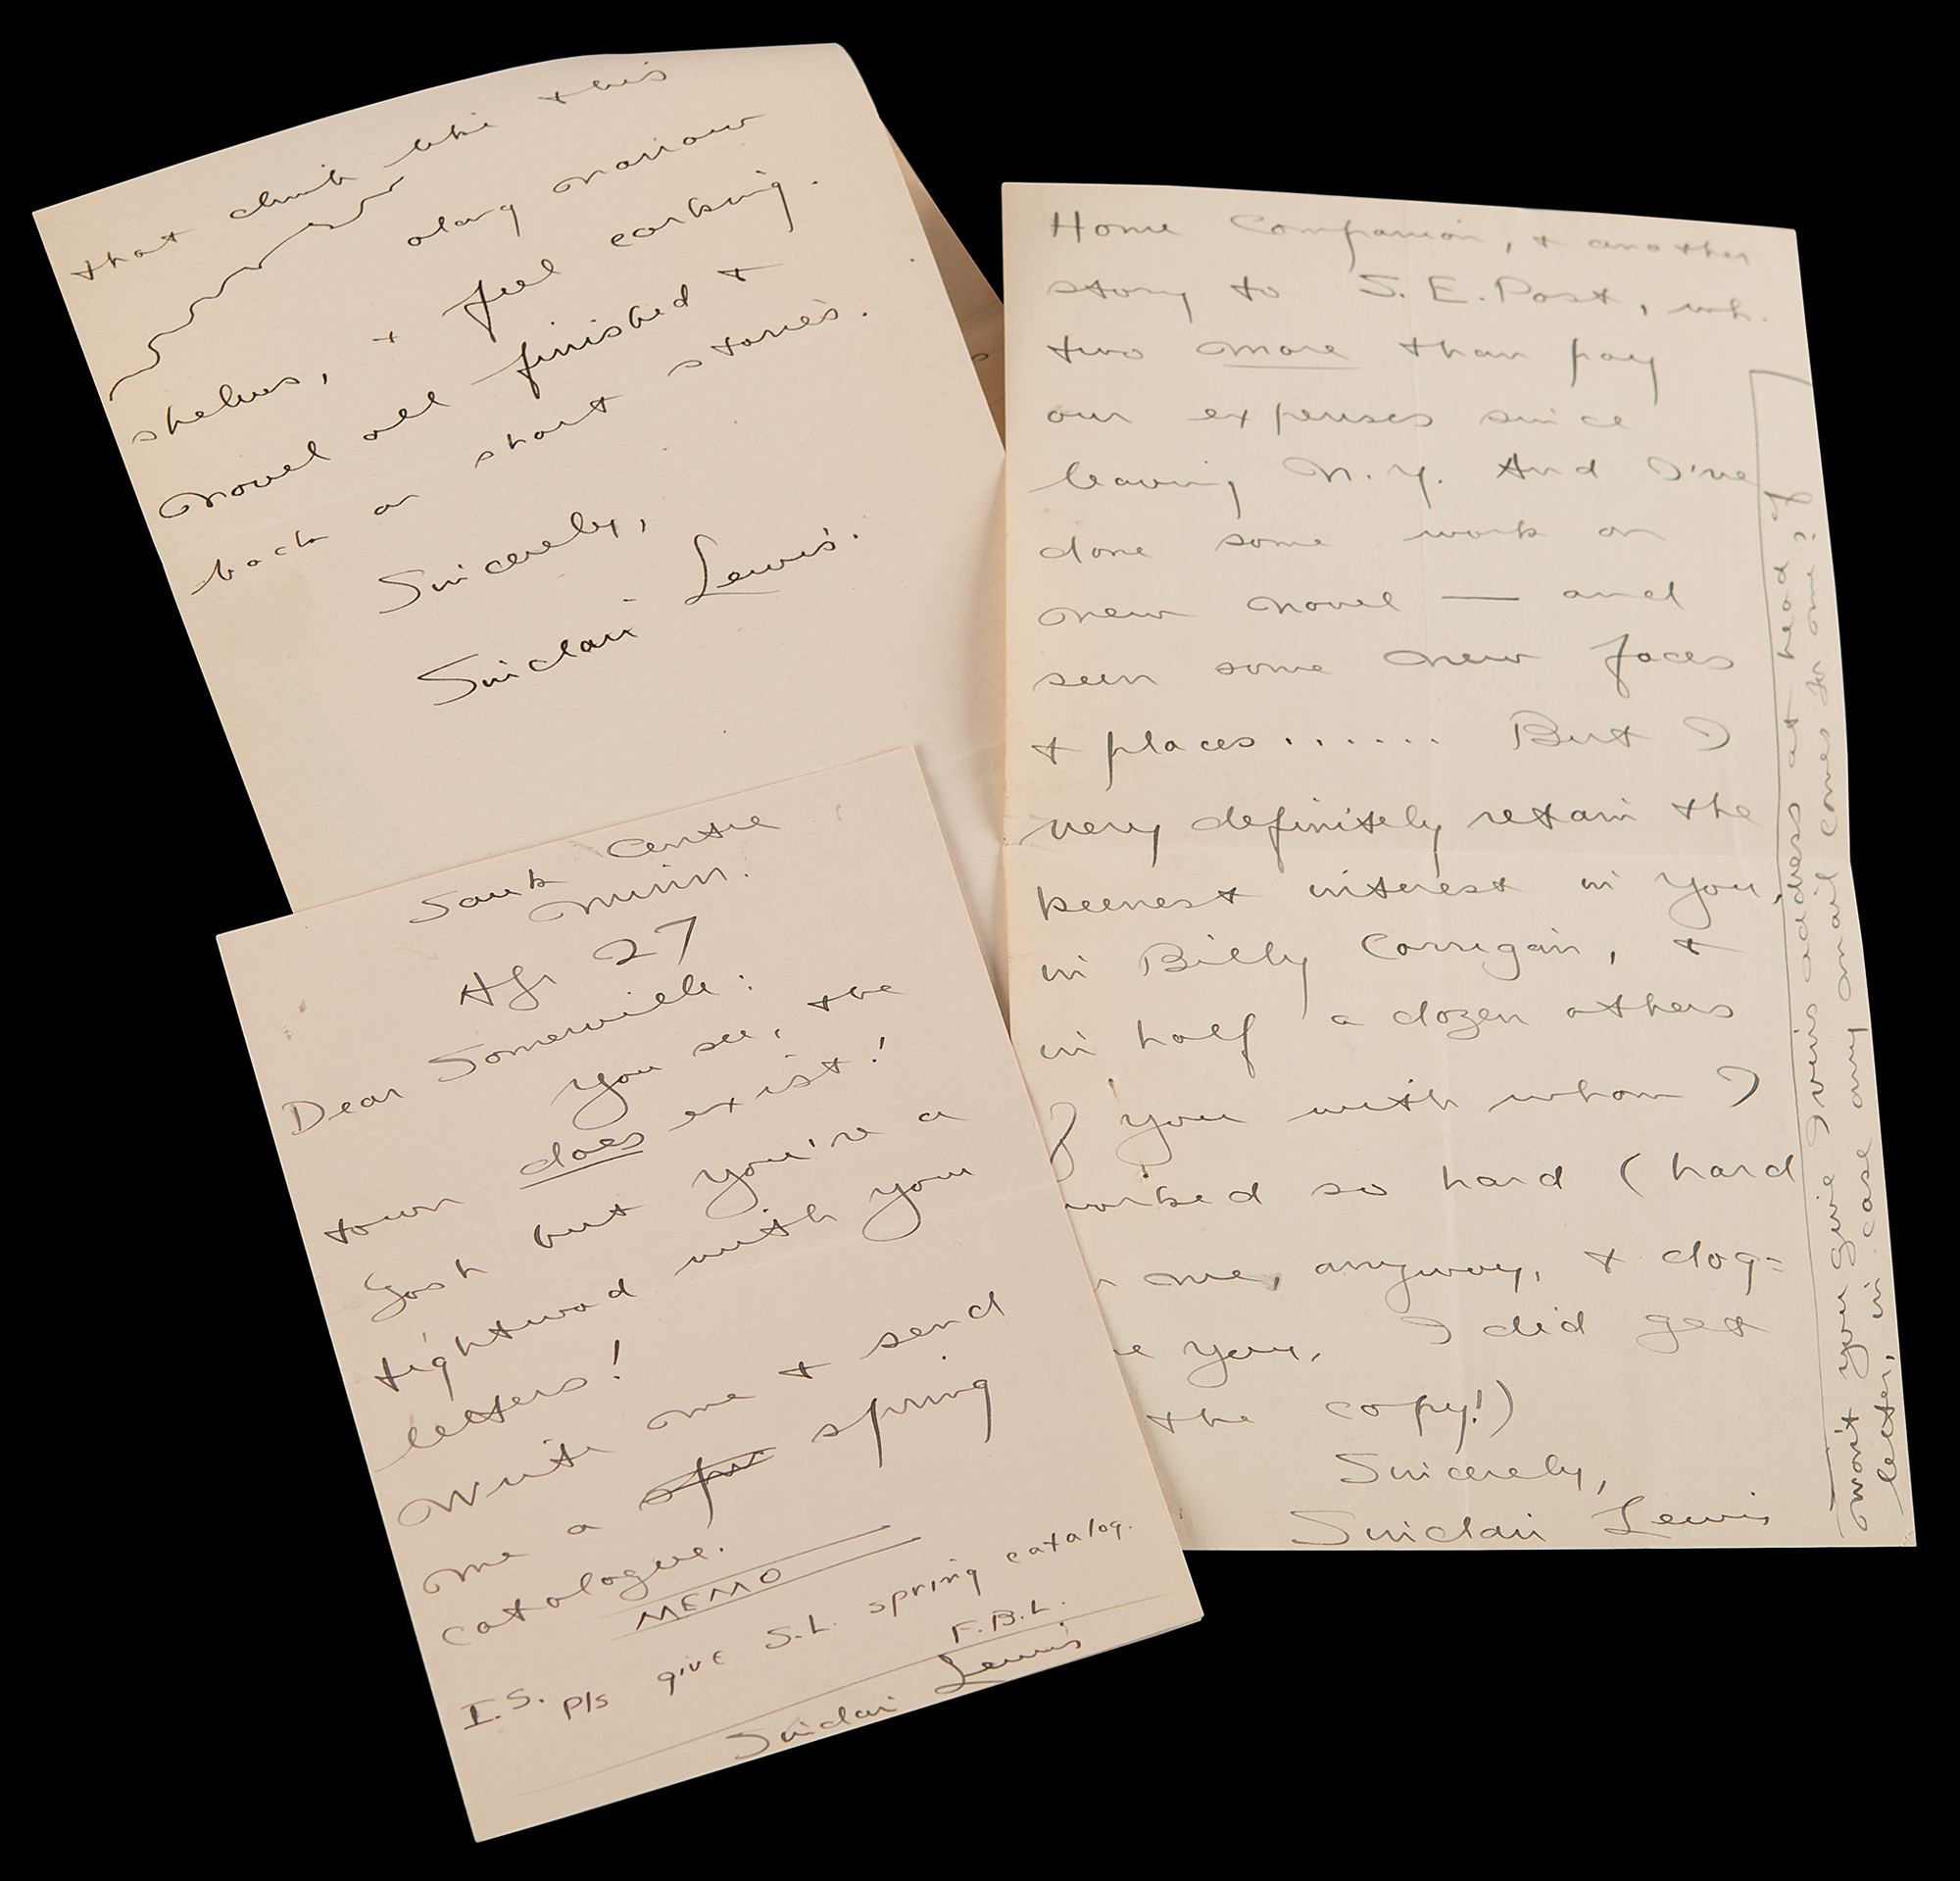 that climb like this
along narrow
shelves, + feel corking.
novel all finished +
back on short stories.
Sincerely,
Sinclair Lewis.
Sauk Centre
Minn.
Apr 27
Dear Somerville:
You see, the
town does exist!
Gosh but you're a
tightwad with your
letters!
Write me + send
me a spr spring
catalogue.
MEMO
I.S. p/s give S.L. spring catalog.
F.B.L.
Sinclair Lewis
Home Companion, + another
story to S.E. Post, wh.
two more than pay
our expenses since
leaving N.Y. And I've
done some work on
new novel — and
seen some new faces
+ places...... But I
very definitely retain the
keenest interest in you,
in Billy Corrigan, +
in half a dozen others
of you with whom I
worked so hard (hard
me, anyway, + dog-
you, I did get
the copy!)
Sincerely,
Sinclair Lewis
Won't you give Irvin's address at head of
letter, in case any mail comes for me?